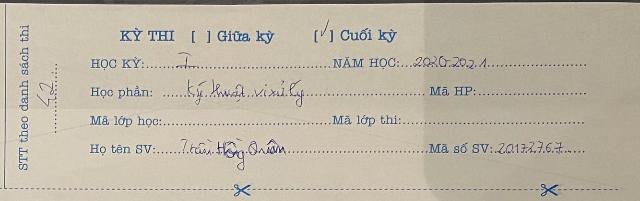 STT theo danh sách thi: 42
KỲ THI [ ] Giữa kỳ [√] Cuối kỳ
HỌC KỲ: I NĂM HỌC: 2020-2021
Học phần: Kỹ thuật vi xử lý Mã HP:
Mã lớp học: Mã lớp thi:
Họ tên SV: Trần Hồng Quân Mã số SV: 20172767